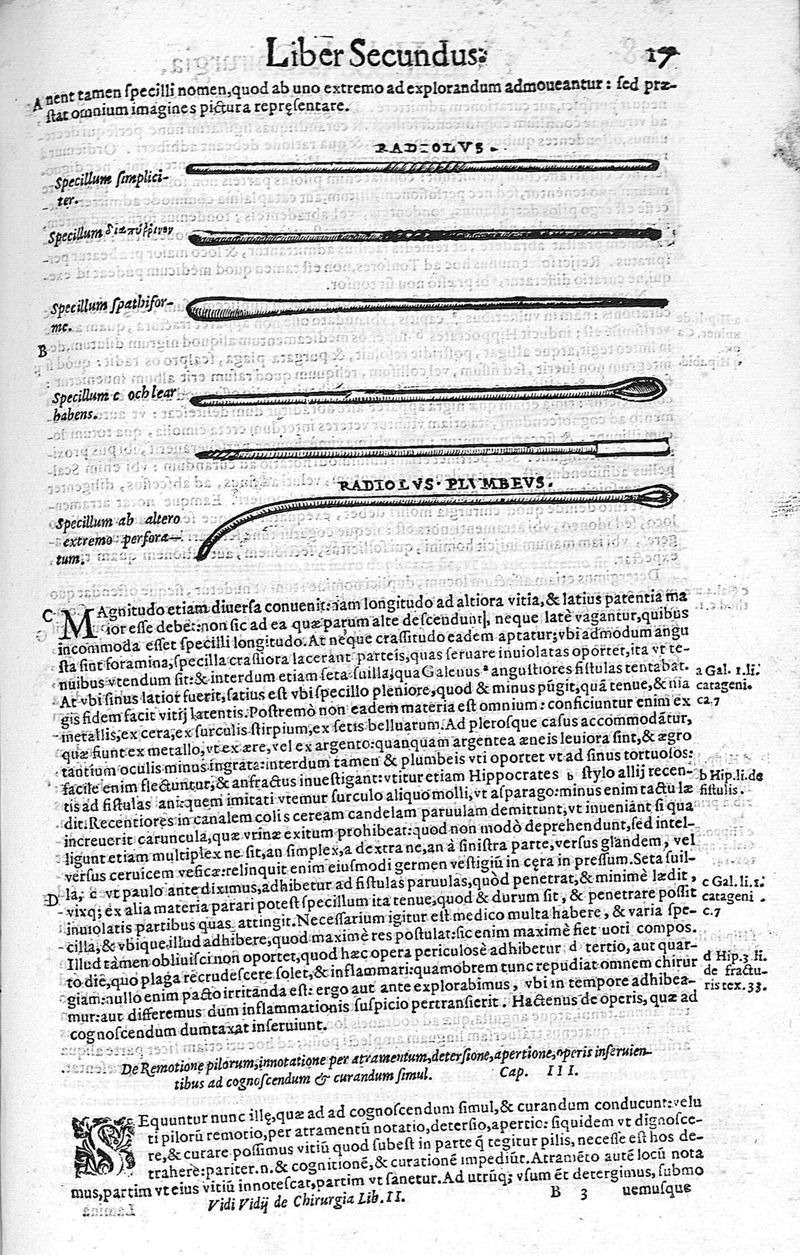 Liber Secundus. 17
A nent tamen specilli nomen, quod ab uno extremo ad explorandum admoueantur: sed præ-
stat omnium imagines pictura repręsentare.
RADIOLVS.
Specillum simplici-
ter.
Specillum διαπύρηνον
Specillum spathifor-
me.
B
Specillum cochlear
habens.
RADIOLVS PLVMBEVS.
Specillum ab altero
extremo perfora-
tum.
C MAgnitudo etiam diuersa conuenit: nam longitudo ad altiora vitia, & latius patentia ma
ior esse debet: non sic ad ea quæ parum alte descendunt, neque latè vagantur, quibus
incommoda esset specilli longitudo. At neque crassitudo eadem aptatur; vbi admodum angu
sta sint foramina, specilla crassiora lacerant parteis, quas seruare inuiolatas oportet, ita vt te-
nuibus vtendum sit: & interdum etiam seta suilla; qua Galenus a angustiores fistulas tentabat.
At vbi sinus latior fuerit, satius est vbi specillo pleniore, quod & minus pūgit, quā tenue, & ma
gis fidem facit vitij latentis. Postremò non eadem materia est omnium: conficiuntur enim ex
metallis, ex cera, ex surculis stirpium, ex setis belluarum. Ad plerosque casus accommodātur,
quæ fiunt ex metallo, vt ex ære, vel ex argento: quanquam argentea æneis leuiora sint, & ægro
tantium oculis minus ingrata: interdum tamen & plumbeis vti oportet vt ad sinus tortuosos:
facile enim flectuntur, & anfractus inuestigant: vtitur etiam Hippocrates b stylo allij recen-
tis ad fistulas ani: quem imitati vtemur surculo aliquo molli, vt asparago: minus enim tactu læ
dit. Recentiores in canalem colis ceream candelam paruulam demittunt, vt inueniant si qua
increuerit caruncula, quæ vrinæ exitum prohibeat: quod non modò deprehendunt, sed intel-
ligunt etiam multiplex ne sit, an simplex, a dextra ne, an à sinistra parte, versus glandem, vel
versus ceruicem vesicæ: relinquit enim eiusmodi germen vestigiū in cęra in pressum. Seta suil-
D la, c vt paulo ante diximus, adhibetur ad fistulas paruulas, quòd penetrat, & minimè lædit,
vixq; ex alia materia parari potest specillum ita tenue, quod & durum sit, & penetrare possit
inuiolatis partibus quas attingit. Necessarium igitur est medico multa habere, & varia spe-
cilla, & vbique illud adhibere, quod maximè res postulat: sic enim maximè fiet uoti compos.
Illud tamen obliuisci non oportet, quod hæc opera periculosè adhibetur d tertio, aut quar-
to die, quo plaga recrudescere solet, & inflammari: quamobrem tunc repudiat omnem chirur
giam: nullo enim pacto irritanda est: ergo aut ante explorabimus, vbi in tempore adhibea-
mur: aut differemus dum inflammationis suspicio pertransierit. Hactenus de operis, quæ ad
cognoscendum dumtaxat inseruiunt.
a Gal. 1. li.
catageni.
ca. 7
b Hip. li. de
fistulis.
c Gal. li. 1.
catageni.
c. 7
d Hip. 3 li.
de fractu-
ris tex. 33.
De Remotione pilorum, innotatione per atramentum, detersione, apertione, operis inseruien-
tibus ad cognoscendum & curandum simul. Cap. III.
SEquuntur nunc illę, quæ ad ad cognoscendum simul, & curandum conducunt: velu
ti pilorū remotio, per atramentū notatio, detersio, apertio: siquidem vt dignosce-
re, & curare possimus vitiū quod subest in parte q̄ tegitur pilis, necesse est hos de-
trahere: pariter. n. & cognitionē, & curationē impediūt. Atramēto autē locū nota
mus, partim vt eius vitiū innotescat, partim vt sanetur. Ad utrūq; vsum ēt detergimus, submo
Vidi Vidij de Chirurgia Lib. II. B 3 uemusque